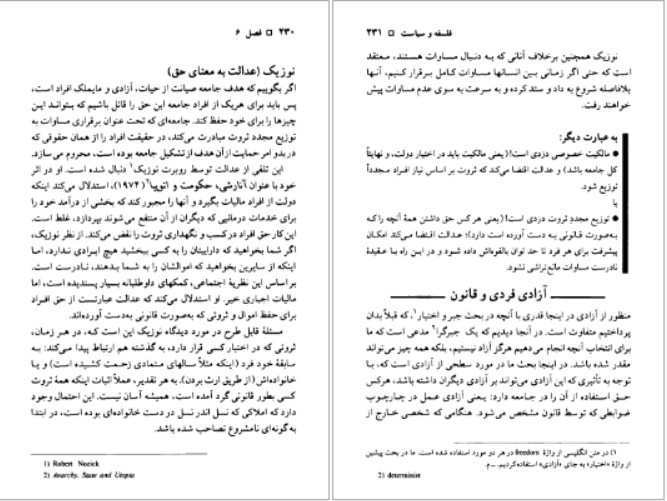 ۲۳۰ □ فصل ۶
نوزیک (عدالت به معنای حق)
اگر بگوییم که هدف جامعه صیانت از حیات، آزادی و مایملک افراد است،
پس باید برای هریک از افراد جامعه این حق را قائل باشیم که بتواند این
چیزها را برای خود حفظ کند. جامعه‌ای که تحت عنوان برقراری مساوات به
توزیع مجدد ثروت مبادرت می‌کند، در حقیقت افراد را از همان حقوقی که
در بدو امر حمایت از آن هدف از تشکیل جامعه بوده است، محروم می‌سازد.
این تلقی از عدالت توسط روبرت نوزیک۱ دنبال شده است. او در اثر
خود با عنوان آنارشی، حکومت و اتوپیا۲ (۱۹۷۴)، استدلال می‌کند اینکه
دولت از افراد مالیات بگیرد و آنها را مجبور کند که بخشی از درآمد خود را
برای خدمات درمانیی که دیگران از آن منتفع می‌شوند بپردازد، غلط است.
این کار حق افراد در کسب و نگهداری ثروت را نقض می‌کند. از نظر نوزیک،
اگر شما بخواهید که داراییتان را به کسی ببخشید هیچ ایرادی ندارد، اما
اینکه از سایرین بخواهید که اموالشان را به شما بدهند، نادرست است.
بر اساس این نظریهٔ اجتماعی، کمکهای داوطلبانه بسیار پسندیده است، اما
مالیات اجباری خیر. او استدلال می‌کند که عدالت عبارتست از حق افراد
برای حفظ اموال و ثروتی که به‌صورت قانونی به‌دست آورده‌اند.
مسئلهٔ قابل طرح در مورد دیدگاه نوزیک این است که، در هر زمان،
ثروتی که در اختیار کسی قرار دارد، به گذشته هم ارتباط پیدا می‌کند: به
سابقهٔ خود فرد (اینکه مثلاً سالهای متمادی زحمت کشیده است) و یا
خانواده‌اش (از طریق ارث بردن). به هر تقدیر، عملاً اثبات اینکه همهٔ ثروت
کسی بطور قانونی گرد آمده است، همیشه آسان نیست. این احتمال وجود
دارد که املاکی که نسل اندر نسل در دست خانواده‌ای بوده است، در ابتدا
به گونه‌ای نامشروع تصاحب شده باشد.
1) Robert Nozick
2) Anarchy, State and Utopia
فلسفه و سیاست □ ۲۳۱
نوزیک همچنین برخلاف آنانی که به دنبال مساوات هستند، معتقد
است که حتی اگر زمانی بین انسانها مساوات کامل برقرار کنیم، آنها
بلافاصله شروع به داد و ستد کرده و به سرعت به سوی عدم مساوات پیش
خواهند رفت.
به عبارت دیگر:
● مالکیت خصوصی دزدی است! (یعنی مالکیت باید در اختیار دولت، و نهایتاً
کل جامعه باشد) و عدالت اقتضا می‌کند که ثروت بر اساس نیاز افراد مجدداً
توزیع شود.
یا
● توزیع مجددِ ثروت دزدی است! (یعنی هر کس حق داشتن همهٔ آنچه را که
به‌صورت قانونی به دست آورده است دارد)؛ عدالت اقتضا می‌کند امکان
پیشرفت برای هر فرد تا حد توان بالقوه‌اش داده شود و در این راه با عقیدهٔ
نادرست مساوات مانع‌تراشی نشود.
آزادی فردی و قانون
منظور از آزادی در اینجا قدری با آنچه در بحث جبر و اختیار۱، که قبلاً بدان
پرداختیم متفاوت است. در آنجا دیدیم که یک جبرگرا۲ مدعی است که ما
برای انتخاب آنچه انجام می‌دهیم هرگز آزاد نیستیم، بلکه همه چیز می‌تواند
مقدر شده باشد. در اینجا بحث ما در مورد سطحی از آزادی است که، با
توجه به تأثیری که این آزادی می‌تواند بر آزادی دیگران داشته باشد، هرکس
حق استفاده از آن را در جامعه دارد: یعنی آزادی عمل در چارچوب
ضوابطی که توسط قانون مشخص می‌شود. هنگامی که شخصی خارج از
۱) در متن انگلیسی از واژهٔ freedom در هر دو مورد استفاده شده است. ما در بحث پیشین
از واژهٔ «اختیار» به جای «آزادی» استفاده کردیم. ـ م.
2) determinist